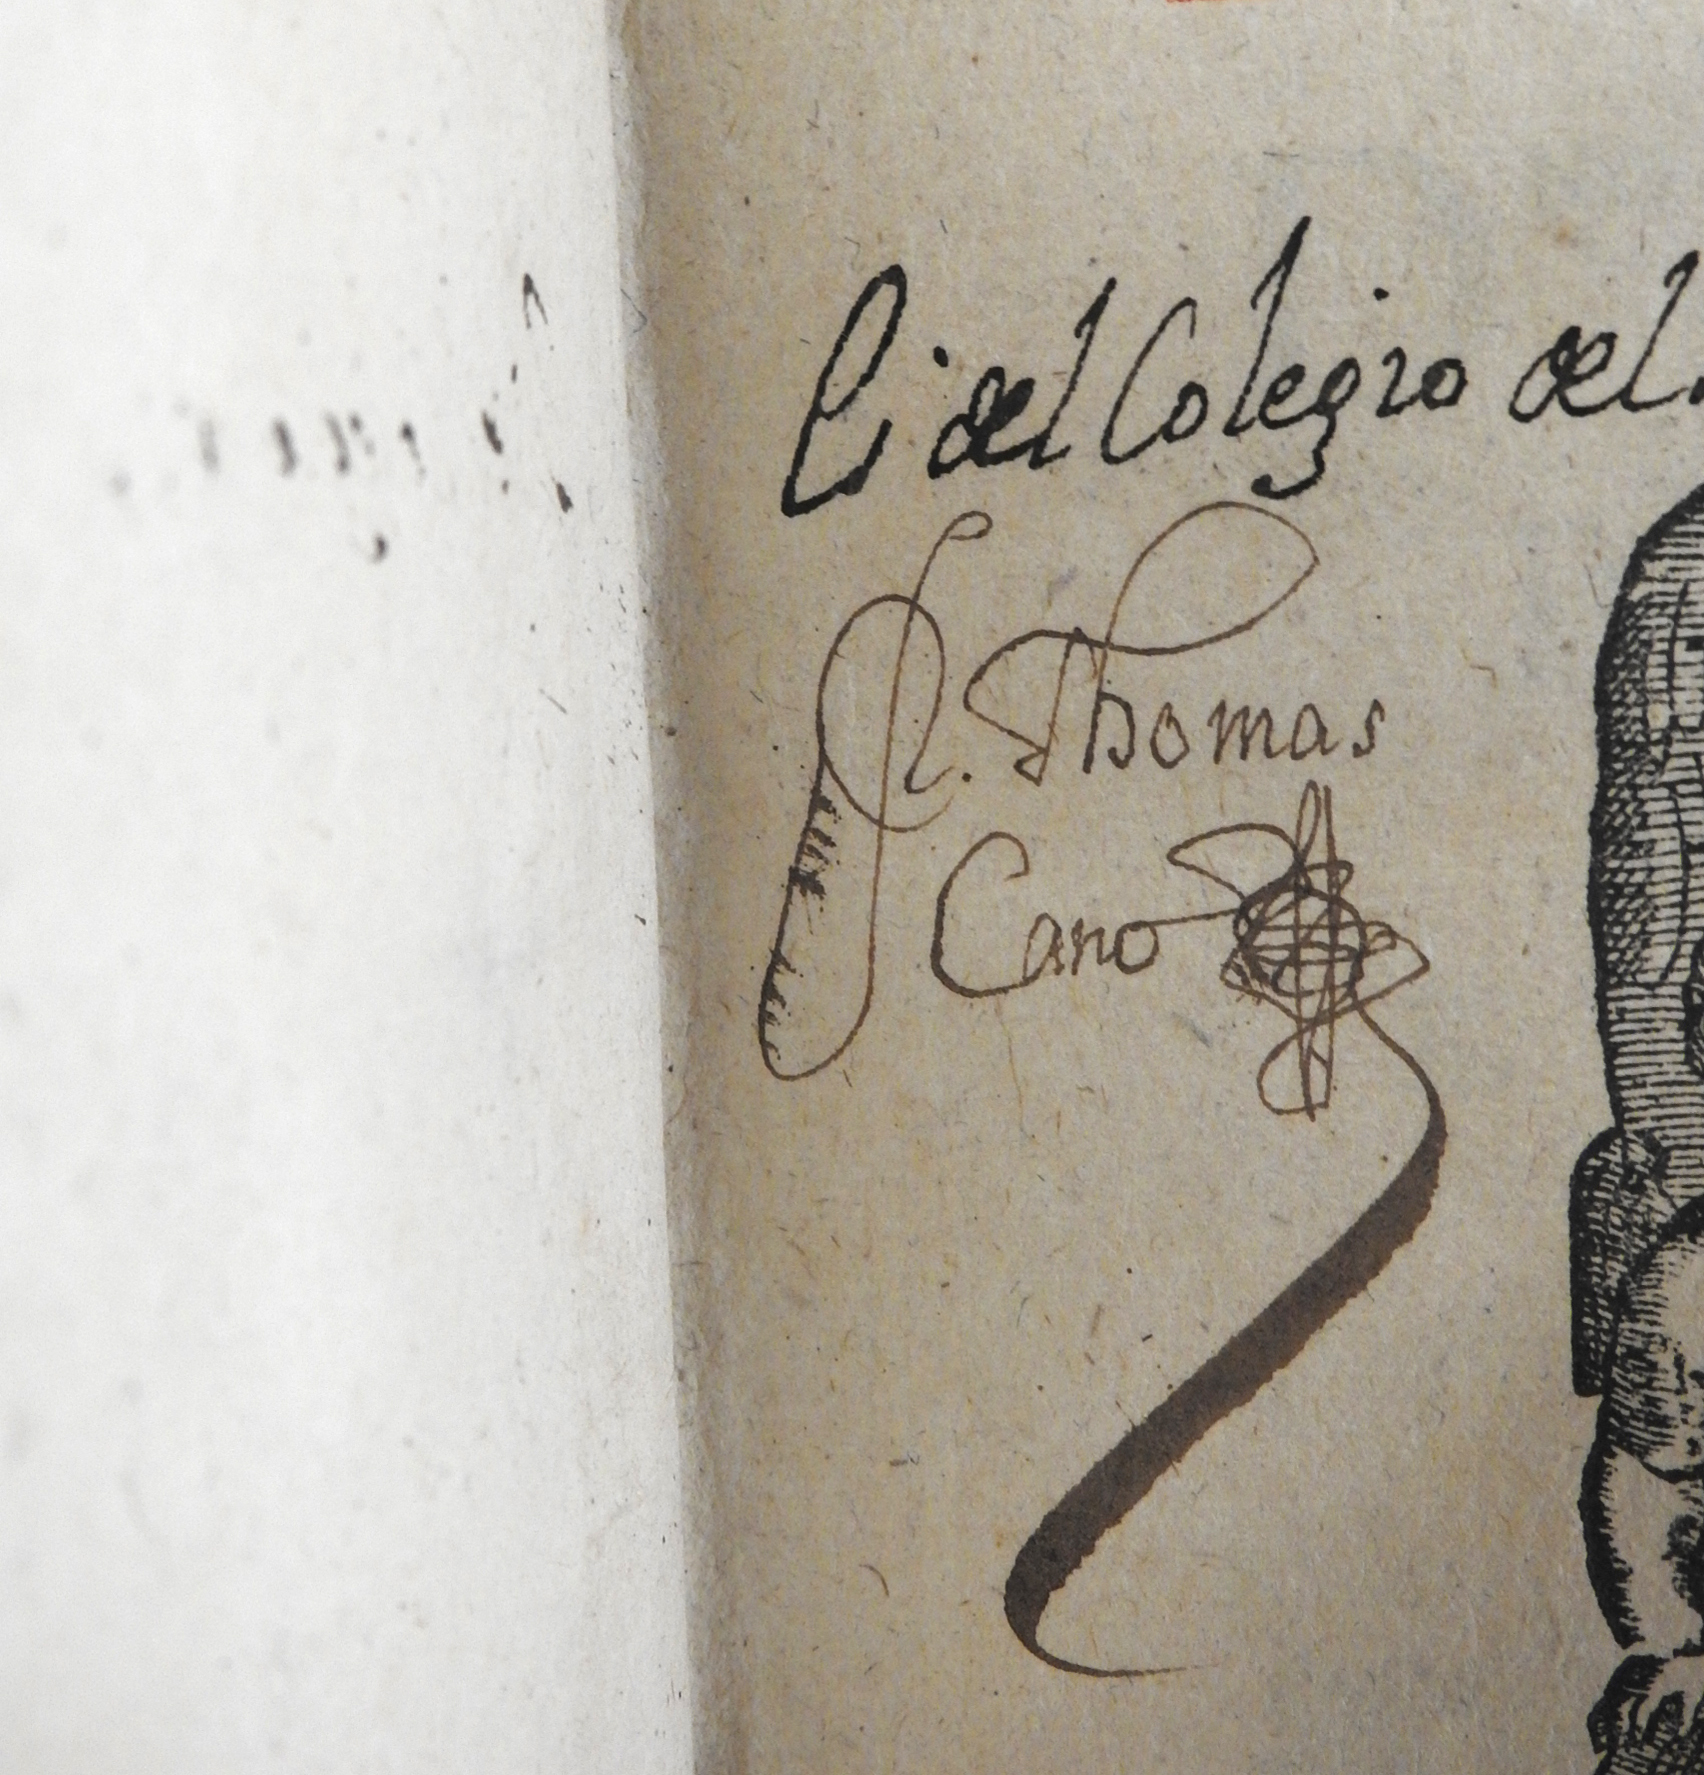 Es del Colegio del
R. Thomas
Cano